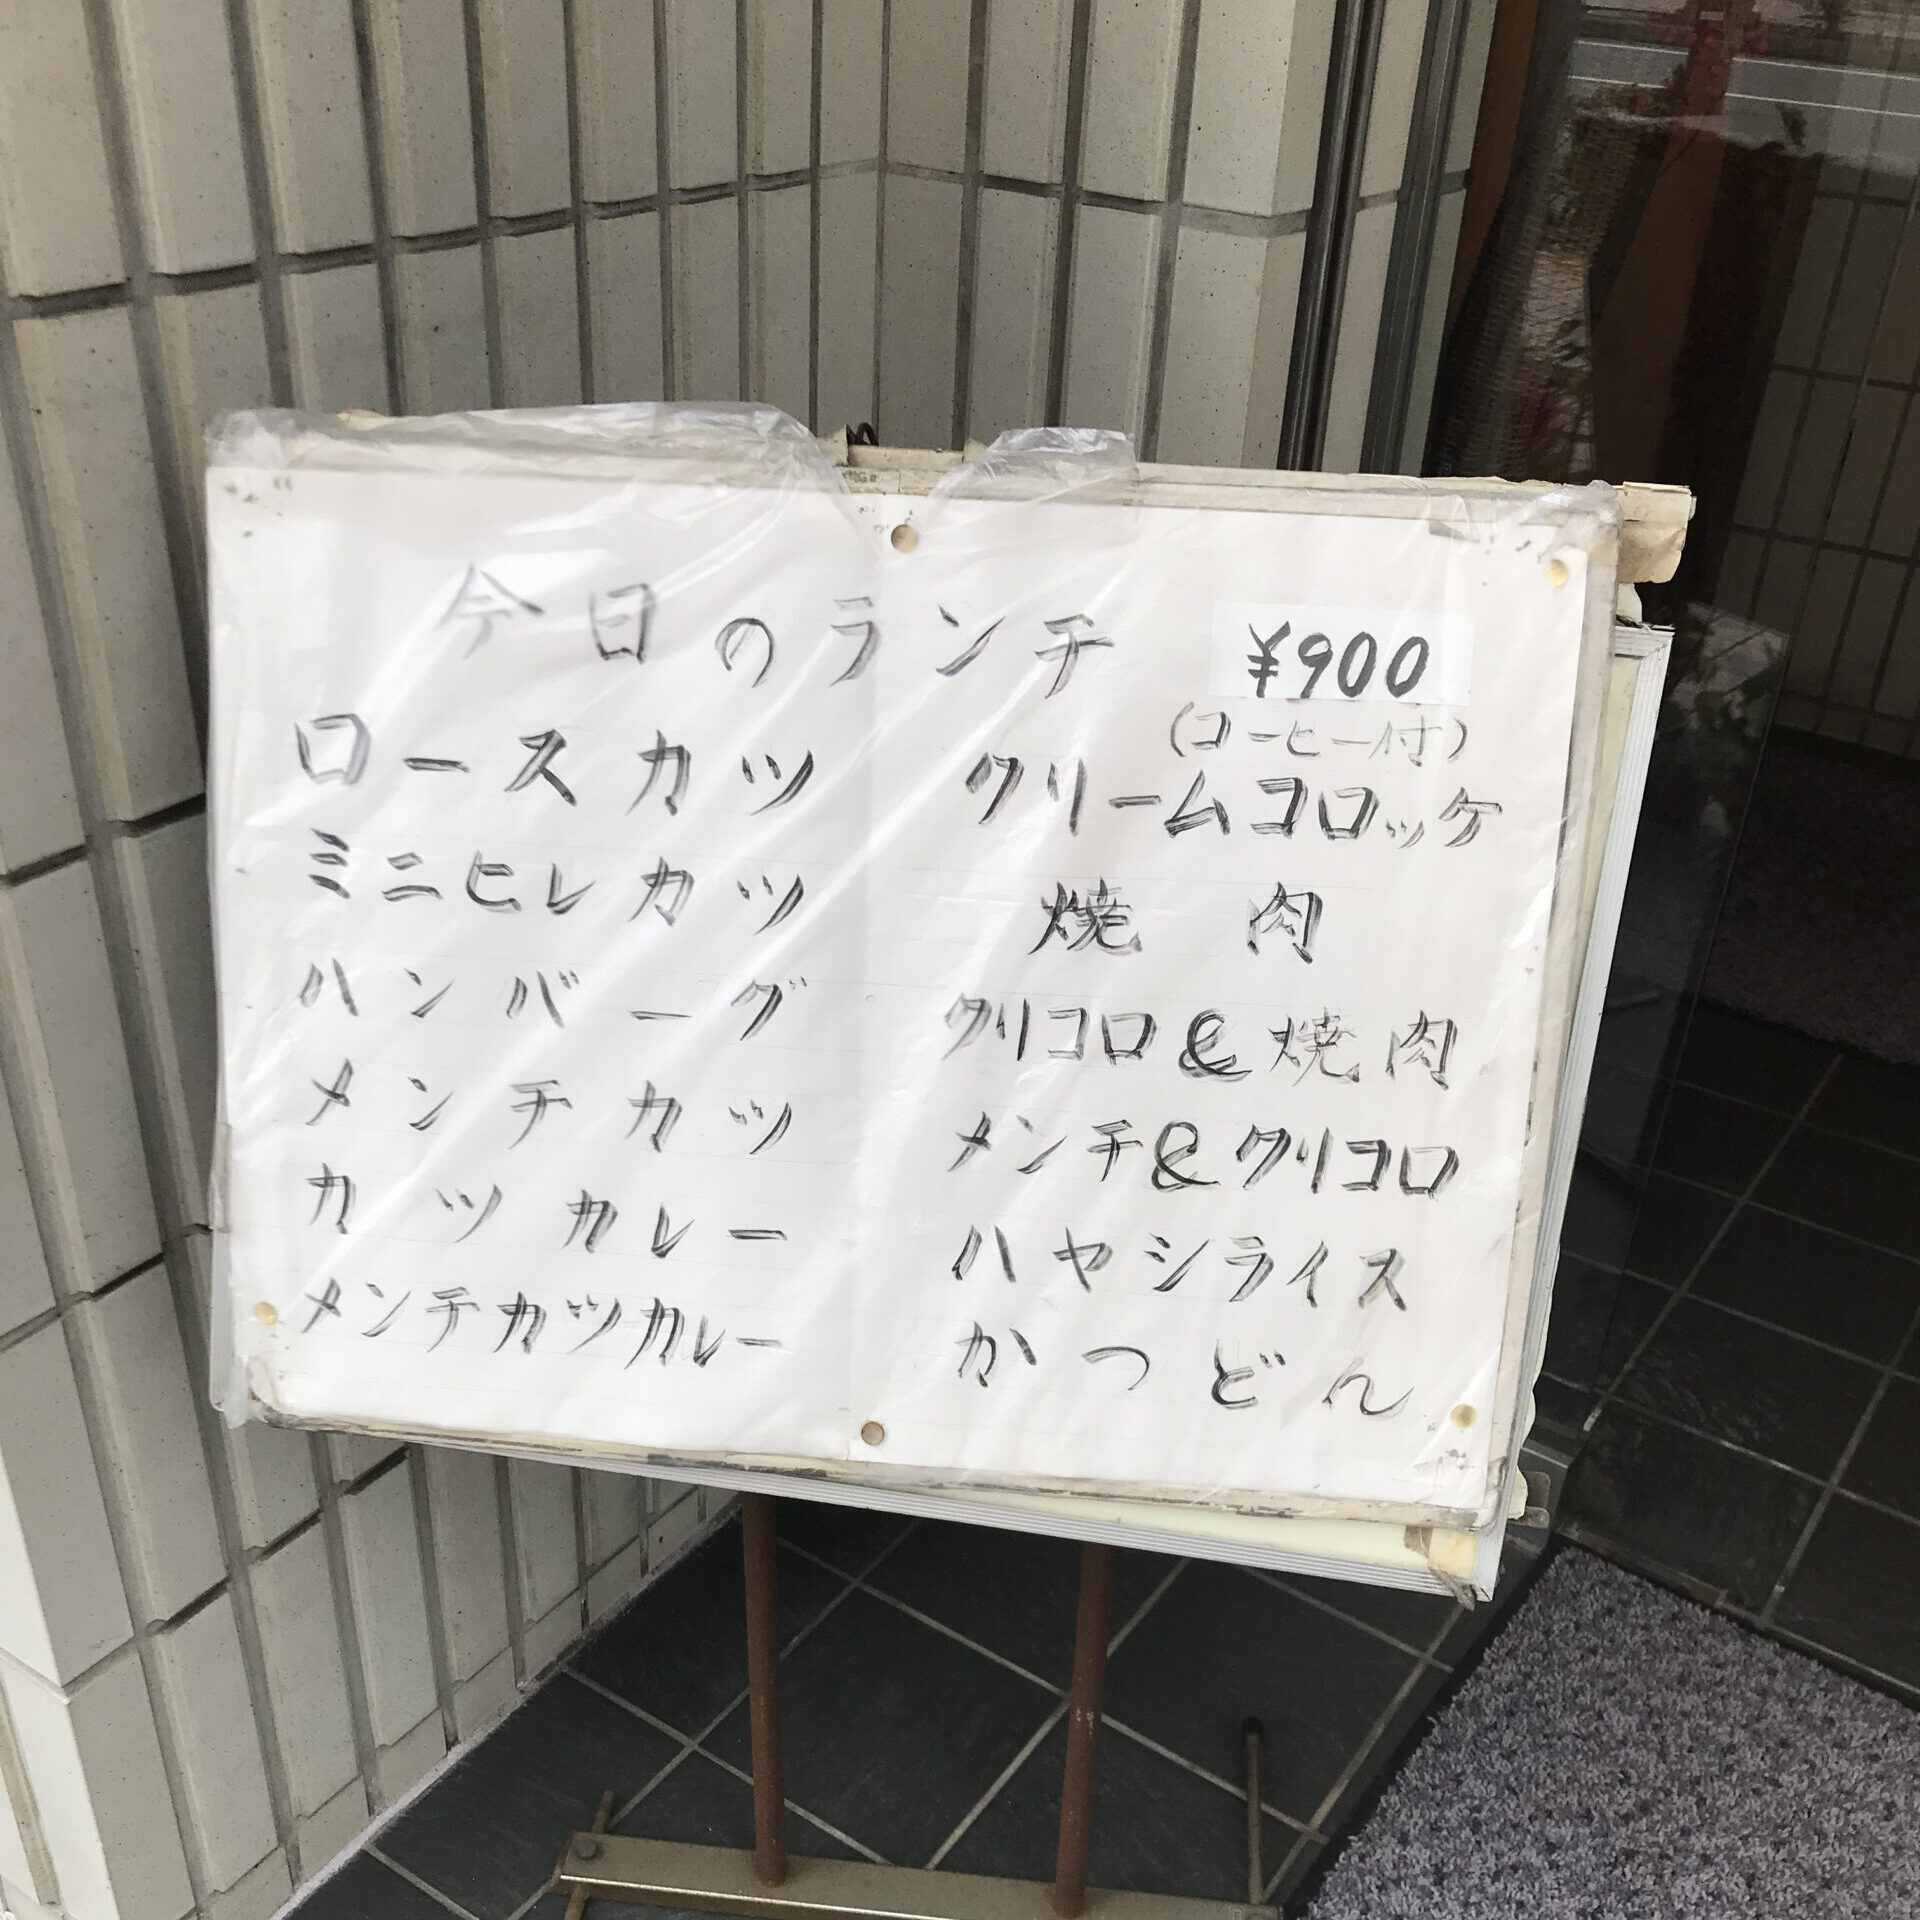 今日のランチ ¥900
(コーヒー付)
ロースカツ
ミニヒレカツ
ハンバーグ
メンチカツ
カツカレー
メンチカツカレー
クリームコロッケ
焼肉
クリコロ&焼肉
メンチ&クリコロ
ハヤシライス
かつどん